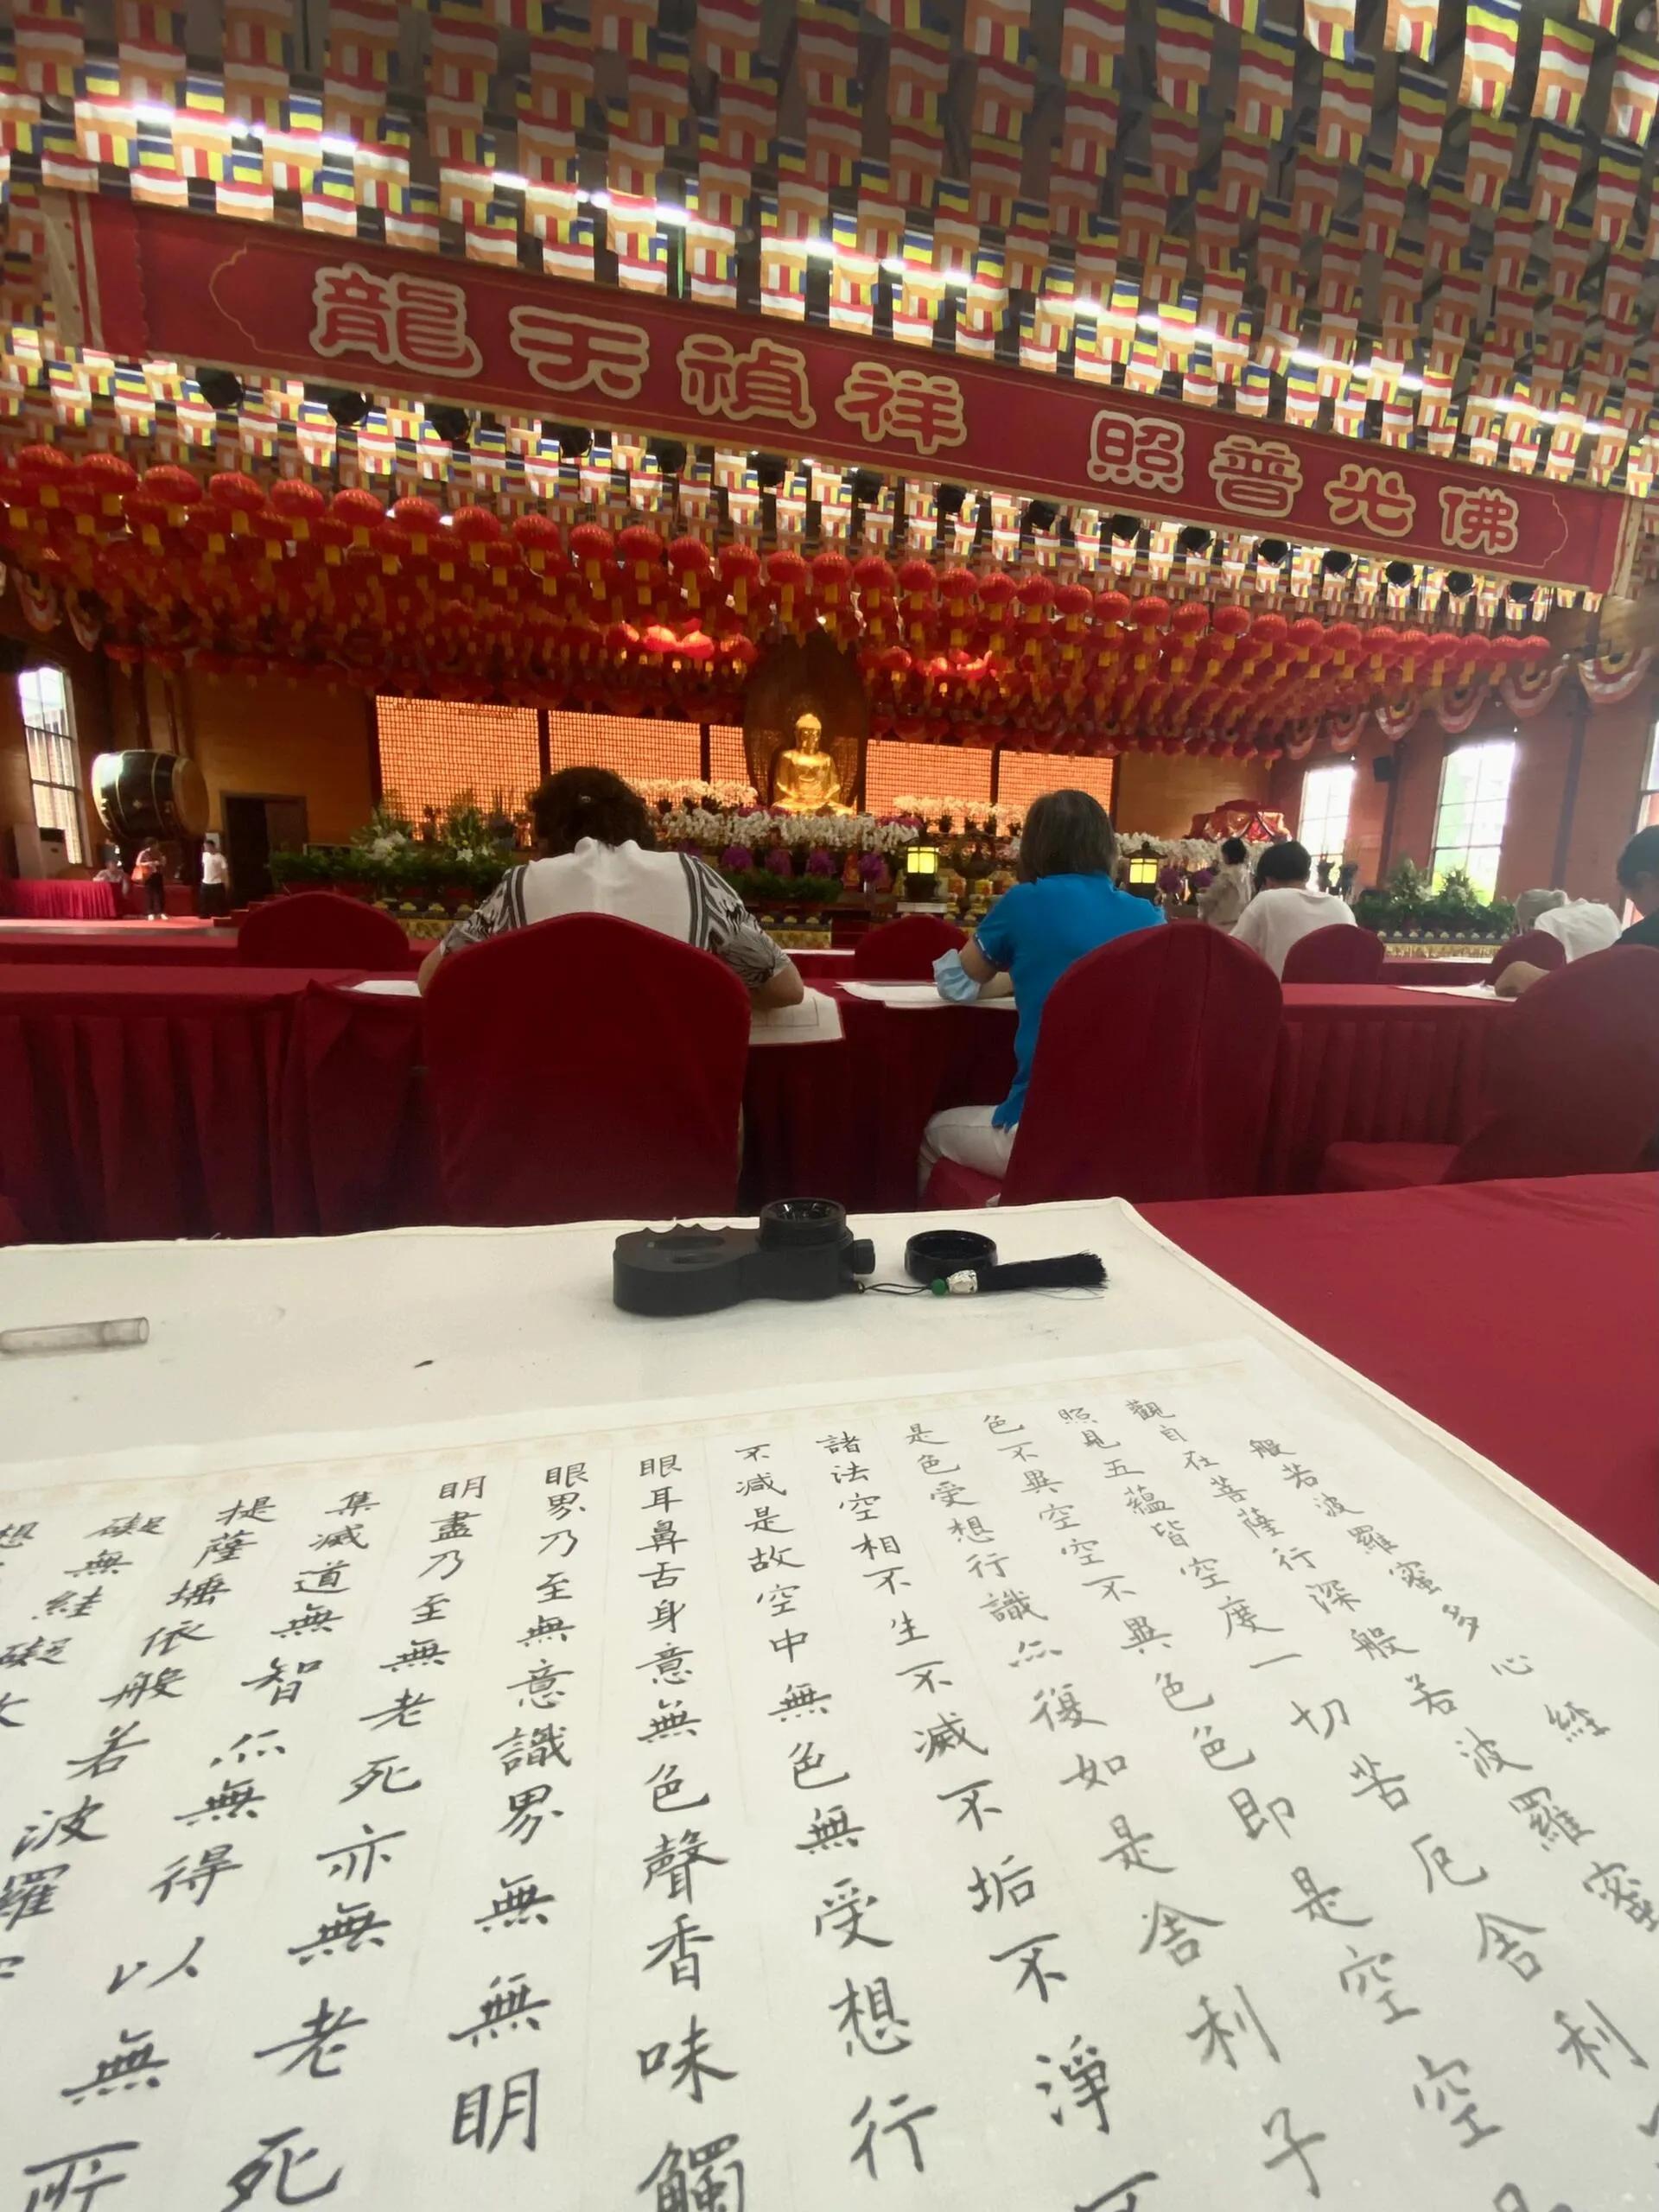 佛光普照 祥禎天龍
般若波羅蜜多心経
觀自在菩薩行深般若波羅蜜
照見五蘊皆空度一切苦厄舍利
色不異空空不異色色即是空空
是色受想行識亦復如是舍利子
諸法空相不生不滅不垢不淨不
不減是故空中無色無受想行
眼耳鼻舌身意無色聲香味觸
眼界乃至無意識界無無明
明盡乃至無老死亦無老死
集滅道無智亦無得以無所
提薩埵依般若波羅
礙無絓礙
想